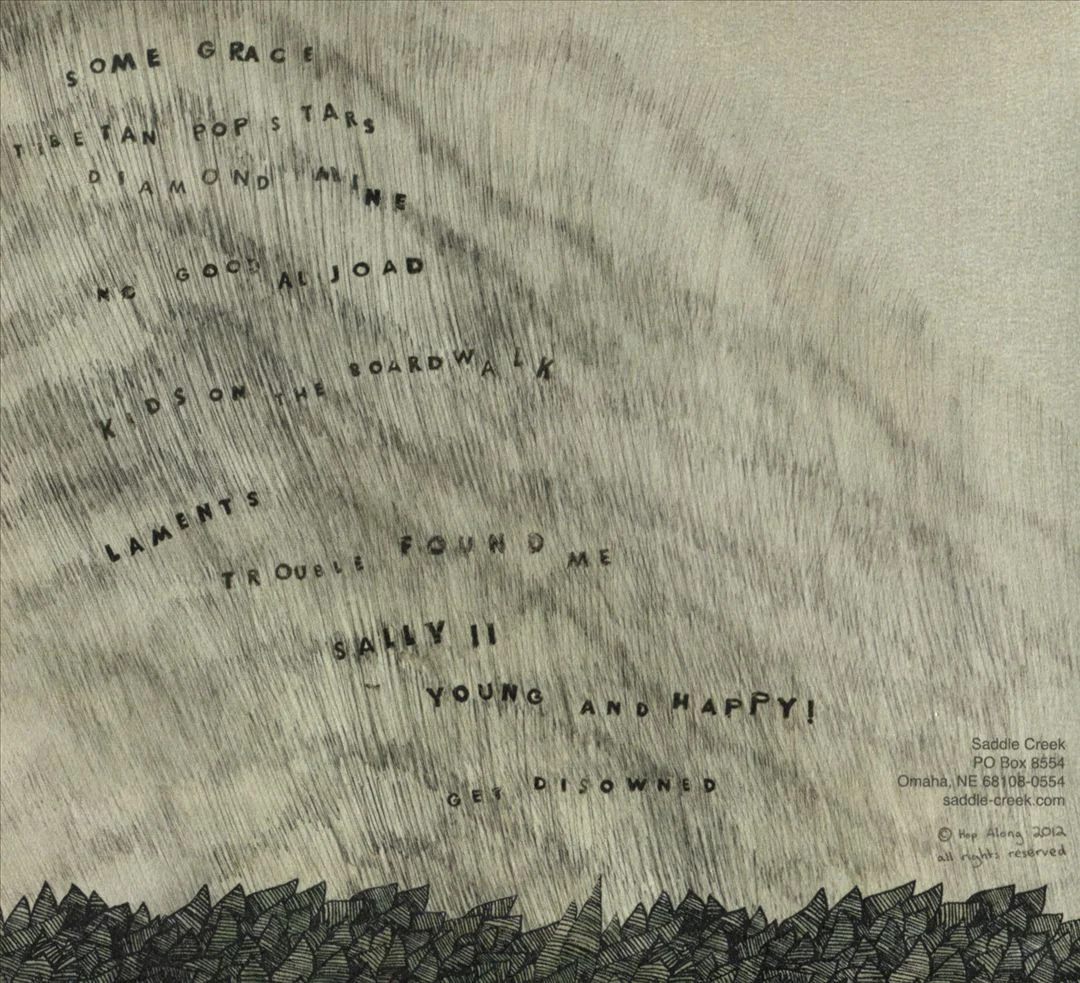 SOME GRACE
TIBETAN POP STARS
DIAMOND MINE
NO GOOD AL JOAD
KIDS ON THE BOARDWALK
LAMENTS
TROUBLE FOUND ME
SALLY II
YOUNG AND HAPPY!
GET DISOWNED
Saddle Creek
PO Box 8554
Omaha, NE 68108-0554
saddle-creek.com
© Hop Along 2012
all rights reserved